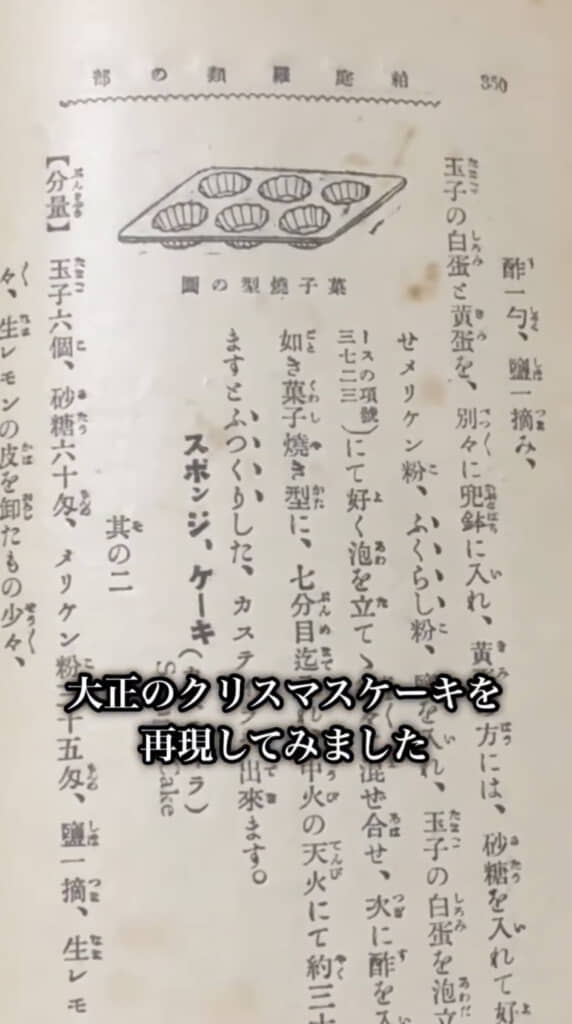 粕庭羅類の部
350
酢一勺、鹽一摘み、
玉子の白蛋と黄蛋を、別々に兜鉢に入れ、黄方には、砂糖を入れて好
せメリケン粉、ふくらし粉、鹽を入れ、玉子の白蛋を泡立
ースの項號三七二三)にて好く泡を立てゝ混ぜ合せ、次に酢を入
如き菓子燒き型に、七分目迄中火の天火にて約三十
ますとふつくりした、カステ出來ます。
菓子燒型の圖
スポンジ、ケーキ(ラ)
Cake
其の二
【分量】玉子六個、砂糖六十匁、メリケン粉十五匁、鹽一摘、生レモ
々、生レモンの皮を卸たもの少々、
大正のクリスマスケーキを
再現してみました